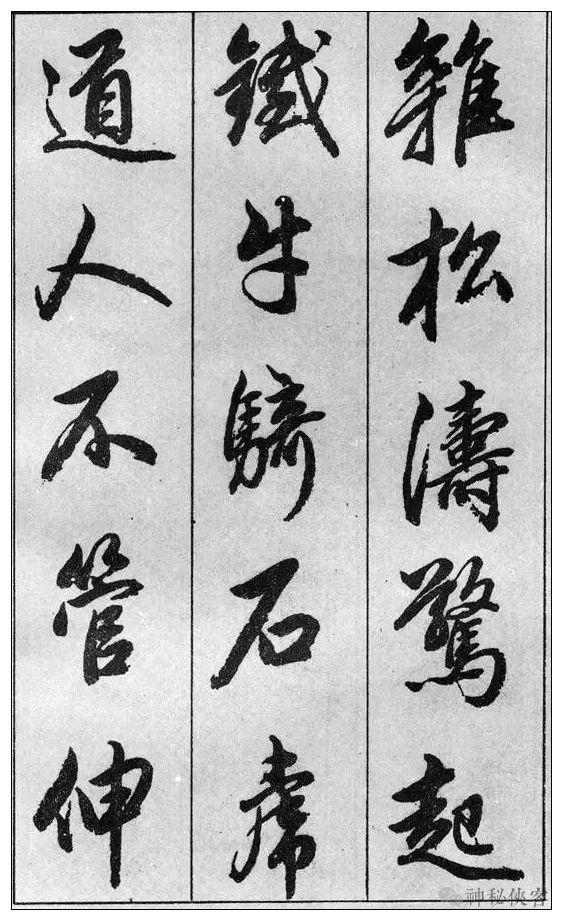 雜松濤驚起
鐵牛騎石虎
道人不管伸
神秘俠客